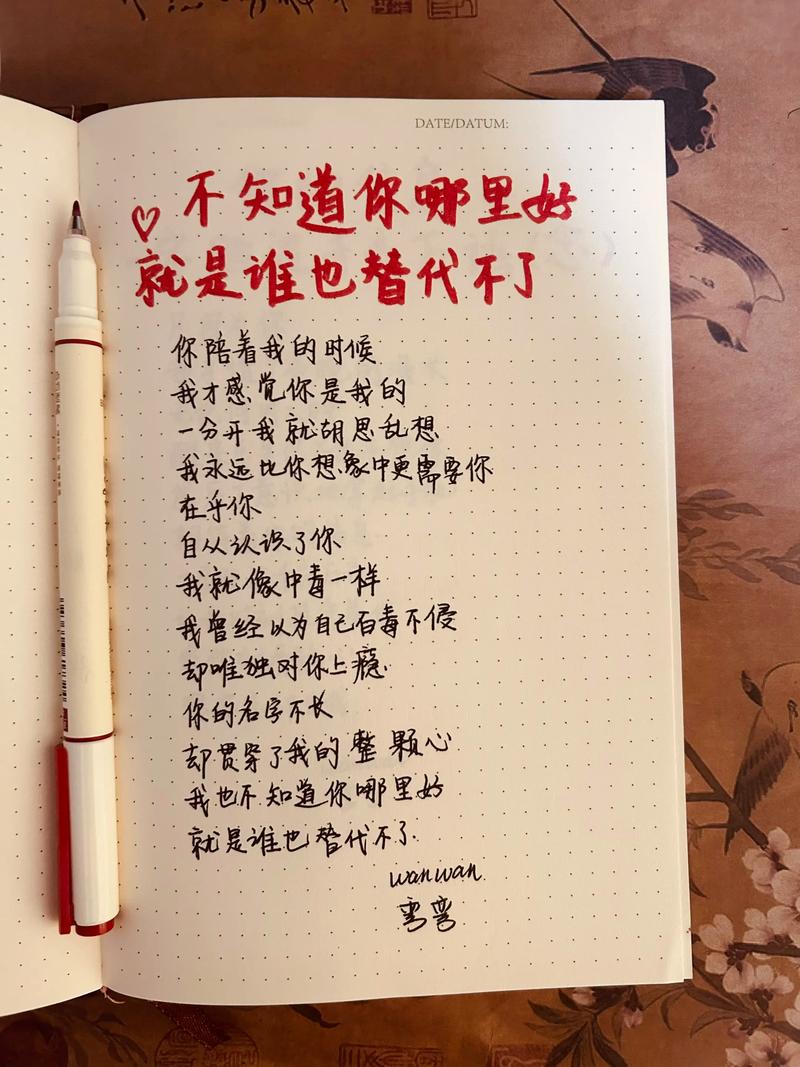 DATE/DATUM:
♡不知道你哪里好
就是谁也替代不了
你陪着我的时候
我才感觉你是我的
一分开我就胡思乱想
我永远比你想象中更需要你
在乎你
自从认识了你
我就像中毒一样
我曾经以为自己百毒不侵
却唯独对你上瘾
你的名字不长
却贯穿了我的整颗心
我也不知道你哪里好
就是谁也替代不了.
wanwan
弯弯